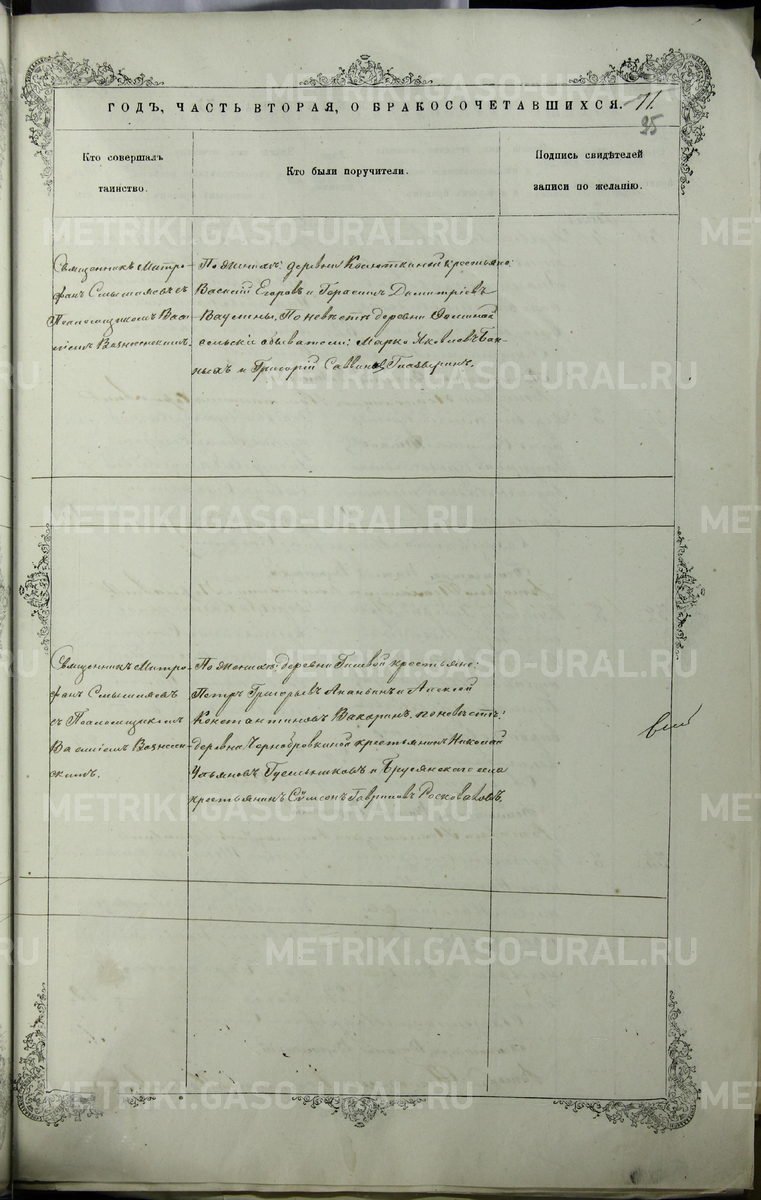 ГОДЪ, ЧАСТЬ ВТОРАЯ, О БРАКОСОЧЕТАВШИХСЯ. 11.
95
Кто совершалъ
таинство.
Кто были поручители.
Подпись свидѣтелей
записи по желанію.
Священникъ Митро-
фанъ Смышляевъ съ
Псаломщикомъ Васи-
ліемъ Вознесенскимъ.
По женихѣ: деревни крестьяне:
Василій Егоровъ и Герасимъ Димитріевъ
Ваулины, По невѣстѣ деревни
сельскіе обыватели: Марко Яковлевъ Бан-
ныхъ и Григорій Саввинъ
Священникъ Митро-
фанъ Смышляевъ
съ Псаломщикомъ
Василіемъ Вознесен-
скимъ.
По женихѣ: деревни Гилевой крестьяне:
Петръ Григорьевъ Ананьинъ и Алексій
Константиновъ Вакаринъ, по невѣстѣ:
деревни Чернобровкиной крестьянинъ Николай
Ульяновъ Гусельниковъ и Брусянскаго села
крестьянинъ Сѵмеонъ Гавриловъ
METRIKI.GASO-URAL.RU